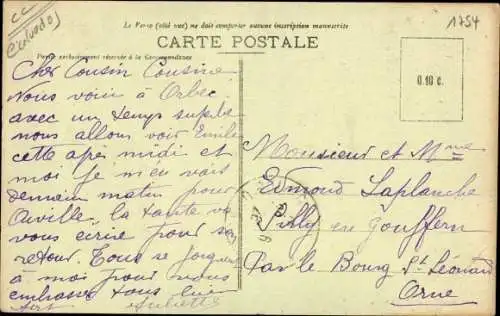 CC
Calvados
1754
Le Verso (côté vue) ne doit comporter aucune inscription manuscrite
CARTE POSTALE
Partie exclusivement réservée à la Correspondance
0.10 c.
Cher Cousin Cousine
Nous voici à Orbec
avec un temps superbe
nous allons voir Emile
cette après midi et
moi je m'en vais
demain matin pour
la tante va
vous écrire pour son
retour. Tous se joignent
à moi pour vous
embrasser tous bien
fort Juliette
Monsieur et Mme
Edmond Laplanche
Silly en Gouffern
Par le Bourg St Léonard
Orne